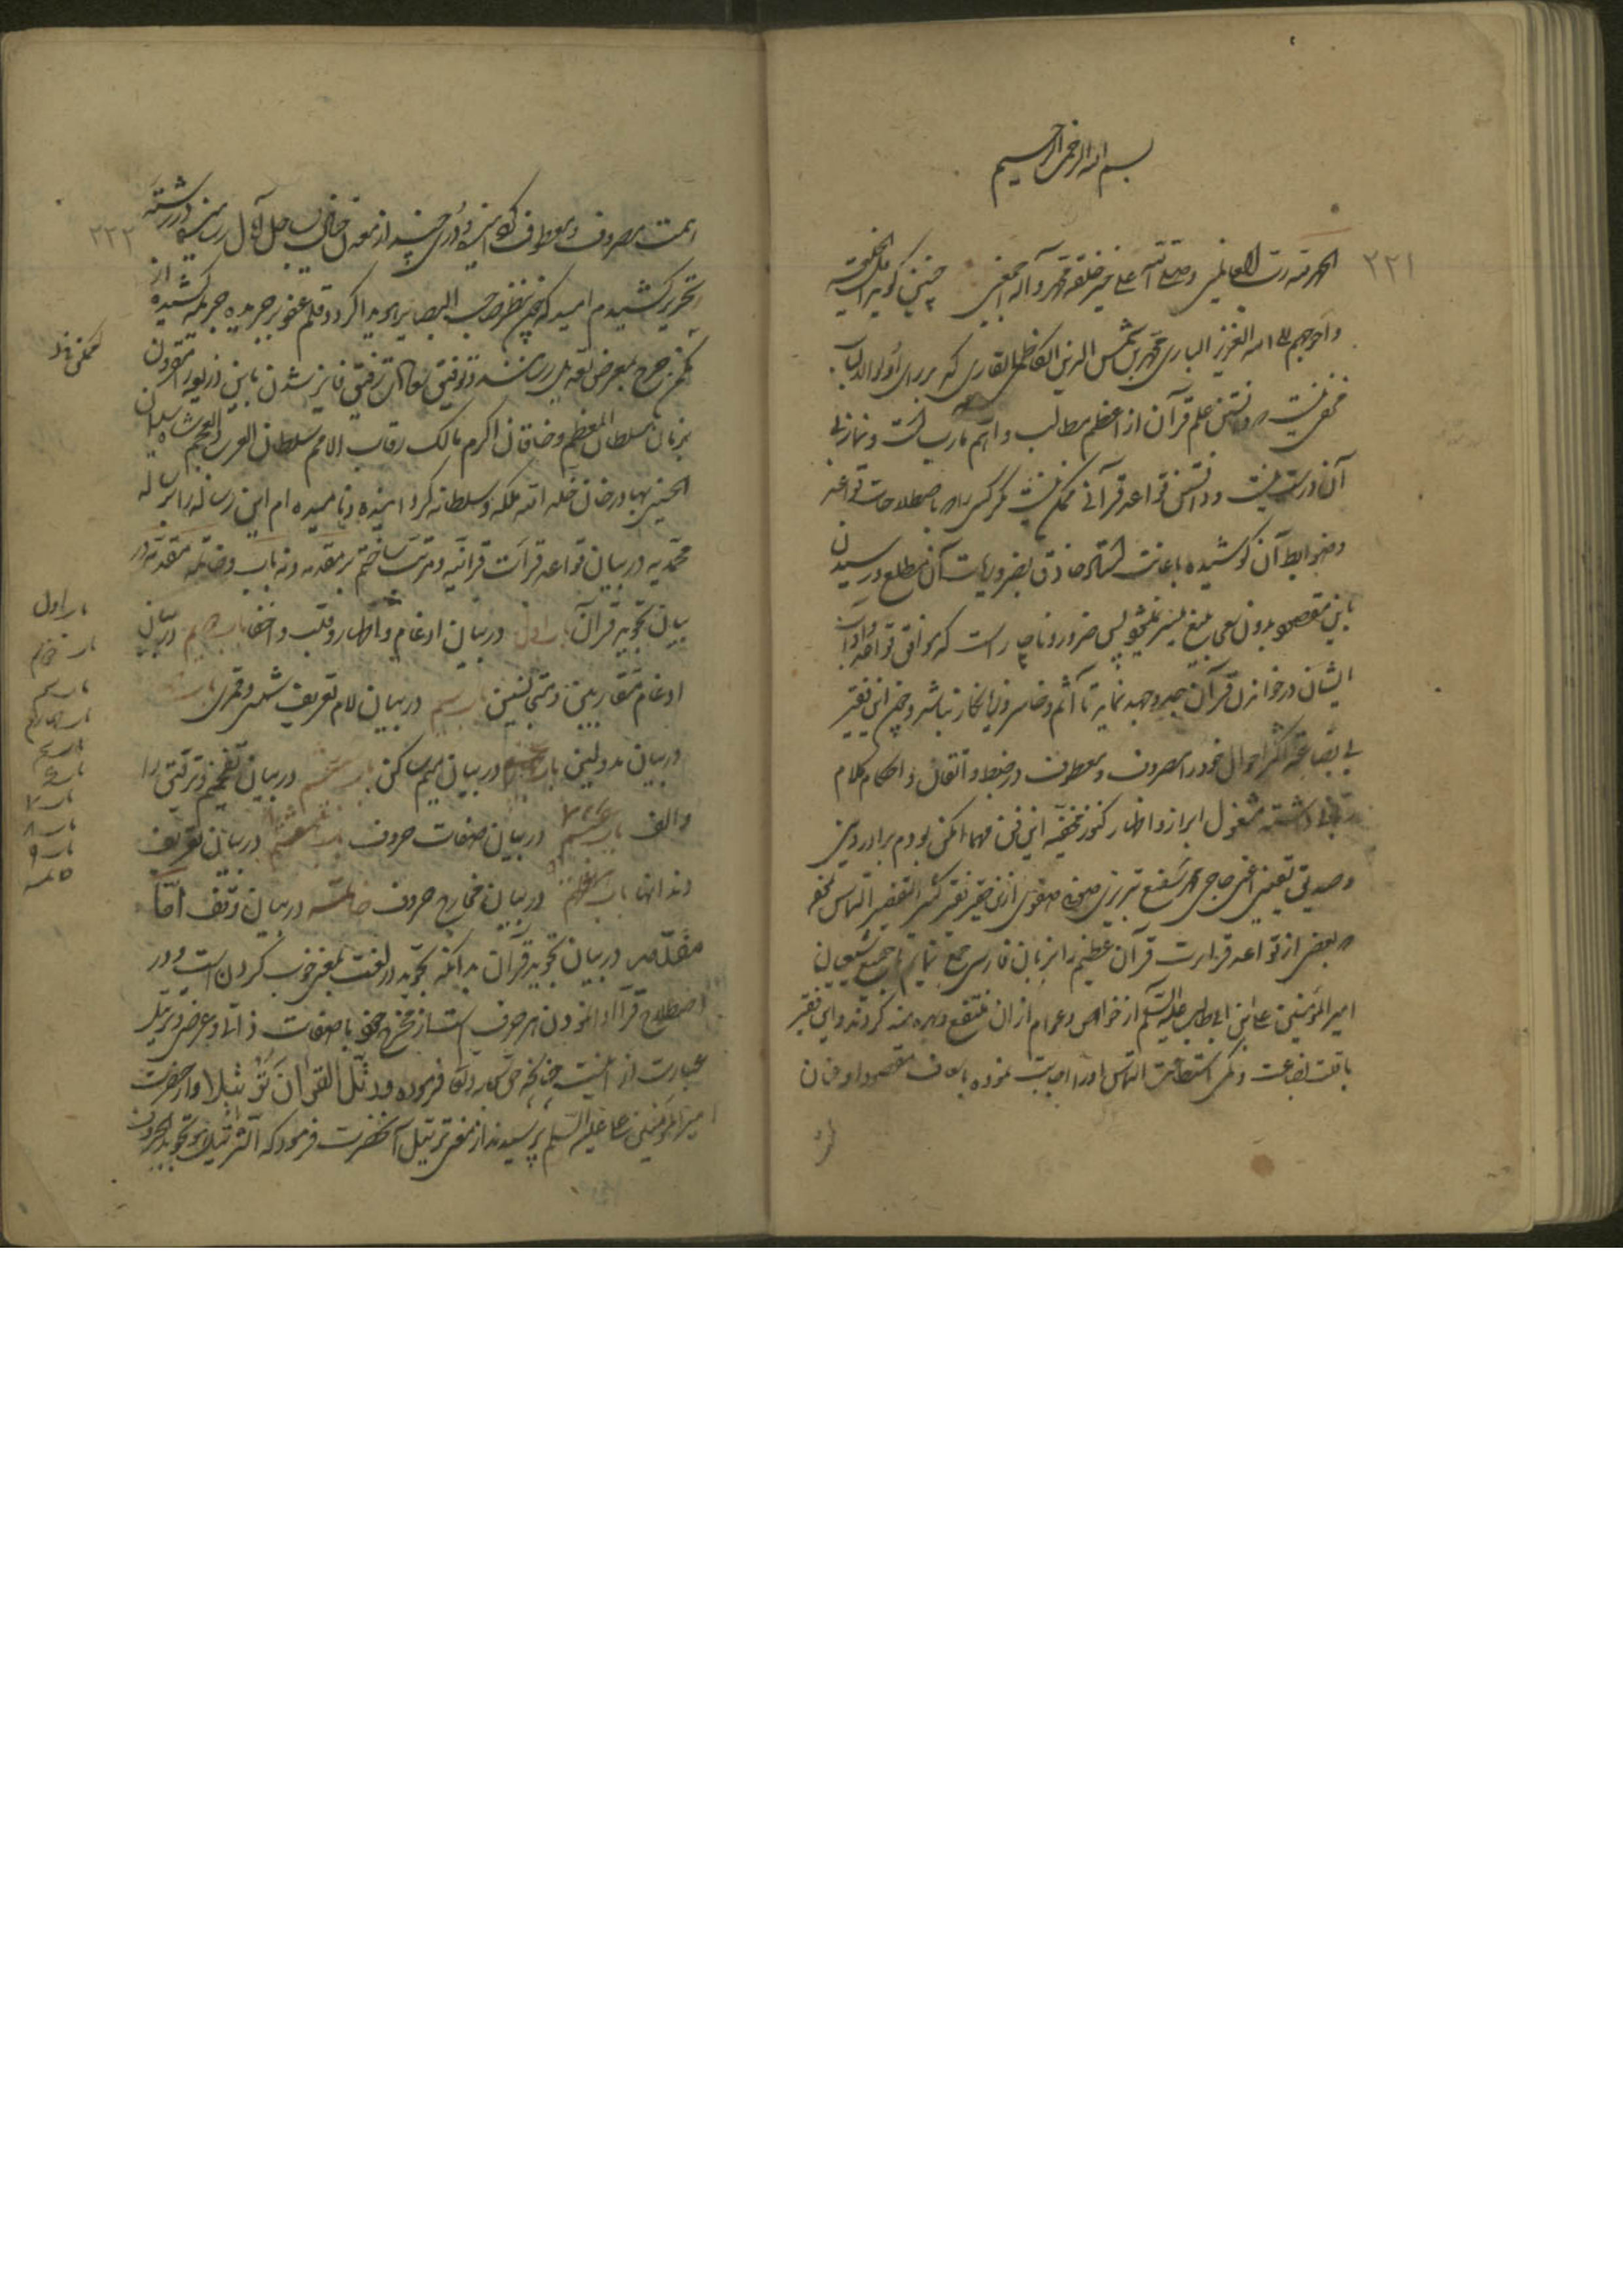 بسم الله الرحمن الرحیم
۲۲۱
الحمد لله رب العالمین و صلی الله علی خیر خلقه محمد و آله اجمعین چنین گوید اقل الخلیقه
و احوجهم الی الله العزیز الباری محمد بن شمس الدین الکاظمی القاری که بر رای اولو الالباب
مخفی نیست که دانستن علم قرآن از اعظم مطالب و اهم مآرب است و نماز بی
آن درست نیست و دانستن قواعد قرآنی ممکن نیست مگر کسی را که باصطلاحات قواعد
و ضوابط آن کوشیده باعانت استاد حاذق بضروریات آن مطلع و رسیدن
باین مقصد بدون سعی بلیغ میسر نمیشود پس ضرور و ناچار است که موافق قواعد و آداب
ایشان در خواندن قرآن جد و جهد نماید تا آثم و خاسر و زیانکار نباشد و چون این فقیر
بی بضاعت اکثر احوال خود را مصروف و معطوف در ضبط و اتقان و احکام کلام
داشته مشغول ابراز و اظهار کنوز مخفیه این فن مهما امکن بودم برادر دینی
و صدیق یقینی اعنی حاجی محمد شفیع تبریزی ازین حقیر فقیر کثیر التقصیر التماس نمود
که بعضی از قواعد قراءت قرآن عظیم را بزبان فارسی جمع نمایم تا جمیع شیعیان
امیر المؤمنین علی ابن ابی طالب علیه السلم از خواص و عوام از ان منتفع و بهره مند گردند و این فقیر
با قلت بضاعت و کمی استطاعت التماس او را اجابت نموده باسعاف مقصود او عنان
۲۲۲
همت مصروف و معطوف گردانیده و دُرری چند از معدن خاطر بساحل آمال رسانیده در رشته
تحریر کشیدم امید که چون بنظر صاحب البصایر هویدا گردد قلم عفو بر جریده جریمه کشیده از
مکمن جرح بمعرض تعدیل رسانند و توفیق رفیق فایز شدن باین ذریعه مقرون
بزمان سلطان المعظم و خاقان اکرم مالک رقاب الامم سلطان العرب و العجم شاه سلیمان
الحسینی بهادر خان خلد الله ملکه و سلطانه گردانیده و نامیده ام این رساله را برساله
محمدیه در بیان قواعد قراءت قرآنیه و مرتب ساختم بر مقدمه و نه باب و خاتمه مقدمه در
بیان تجوید قرآن باب اول در بیان ادغام و اظهار و قلب و اخفا باب دویم در بیان
ادغام متقاربین و متجانسین باب سیم در بیان لام تعریف شمسی و قمری باب
در بیان مد و لین باب پنجم در بیان میم ساکن باب ششم در بیان تفخیم و ترقیق را
و الف باب هفتم در بیان صفات حروف باب هشتم در بیان تعریف
دندانها باب نهم در بیان مخارج حروف خاتمه در بیان وقف امّا
مقدّمه در بیان تجوید قرآن بدانکه تجوید در لغت بمعنی خوب کردن است و در
اصطلاح قرّا ادا نمودن هر حرف است از مخرج خود با صفات ذاتی و عرضی و ترتیل
عبارت از اینست چنانچه حق سبحانه و تعالی فرموده و رَتِّل القرآن تَرتیلا و از حضرت
امیر المؤمنین علی علیه السلم پرسیدند از معنی ترتیل آنحضرت فرمود که الترتیل هو تجوید الحروف
باب اول
باب دویم
باب سیم
باب چهارم
باب ۷
باب ۸
باب ۹
خاتمه